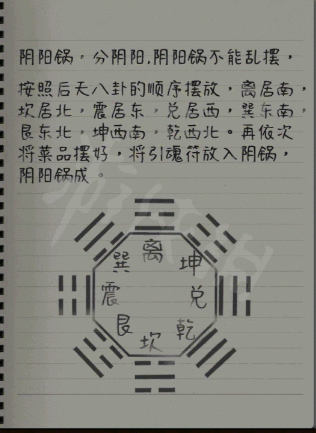 阴阳锅，分阴阳,阴阳锅不能乱摆，
按照后天八卦的顺序摆放，离居南，
坎居北，震居东，兑居西，巽东南，
艮东北，坤西南，乾西北。再依次
将菜品摆好，将引魂符放入阴锅，
阴阳锅成。
离
巽
坤
震
兑
艮
乾
坎